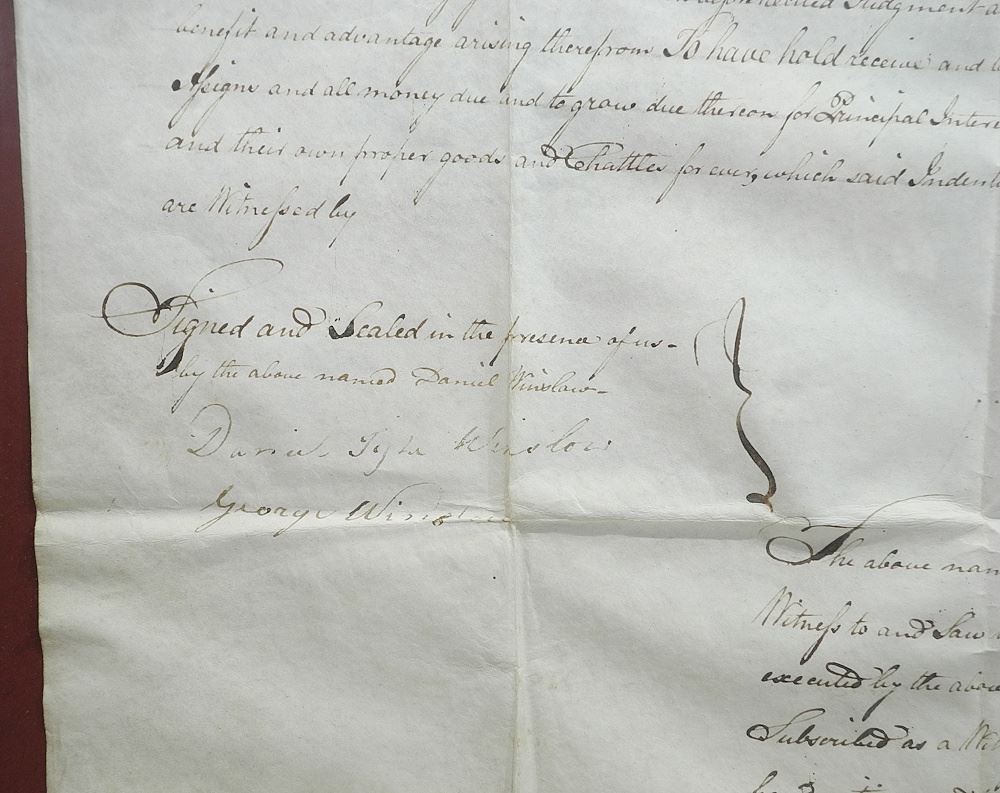 Judgment a
benefit and advantage arising therefrom To have hold receive and
Assigns and all money due and to grow due thereon for Principal Intere
and their own proper goods and Chattles for ever, which said Indent
are Witnessed by
Signed and Sealed in the presence of us -
by the above named Daniel Winslow -
Daniel Winslow
George Winslow
The above nam
Witness to and Saw
executed by the above
Subscribed as a Wit